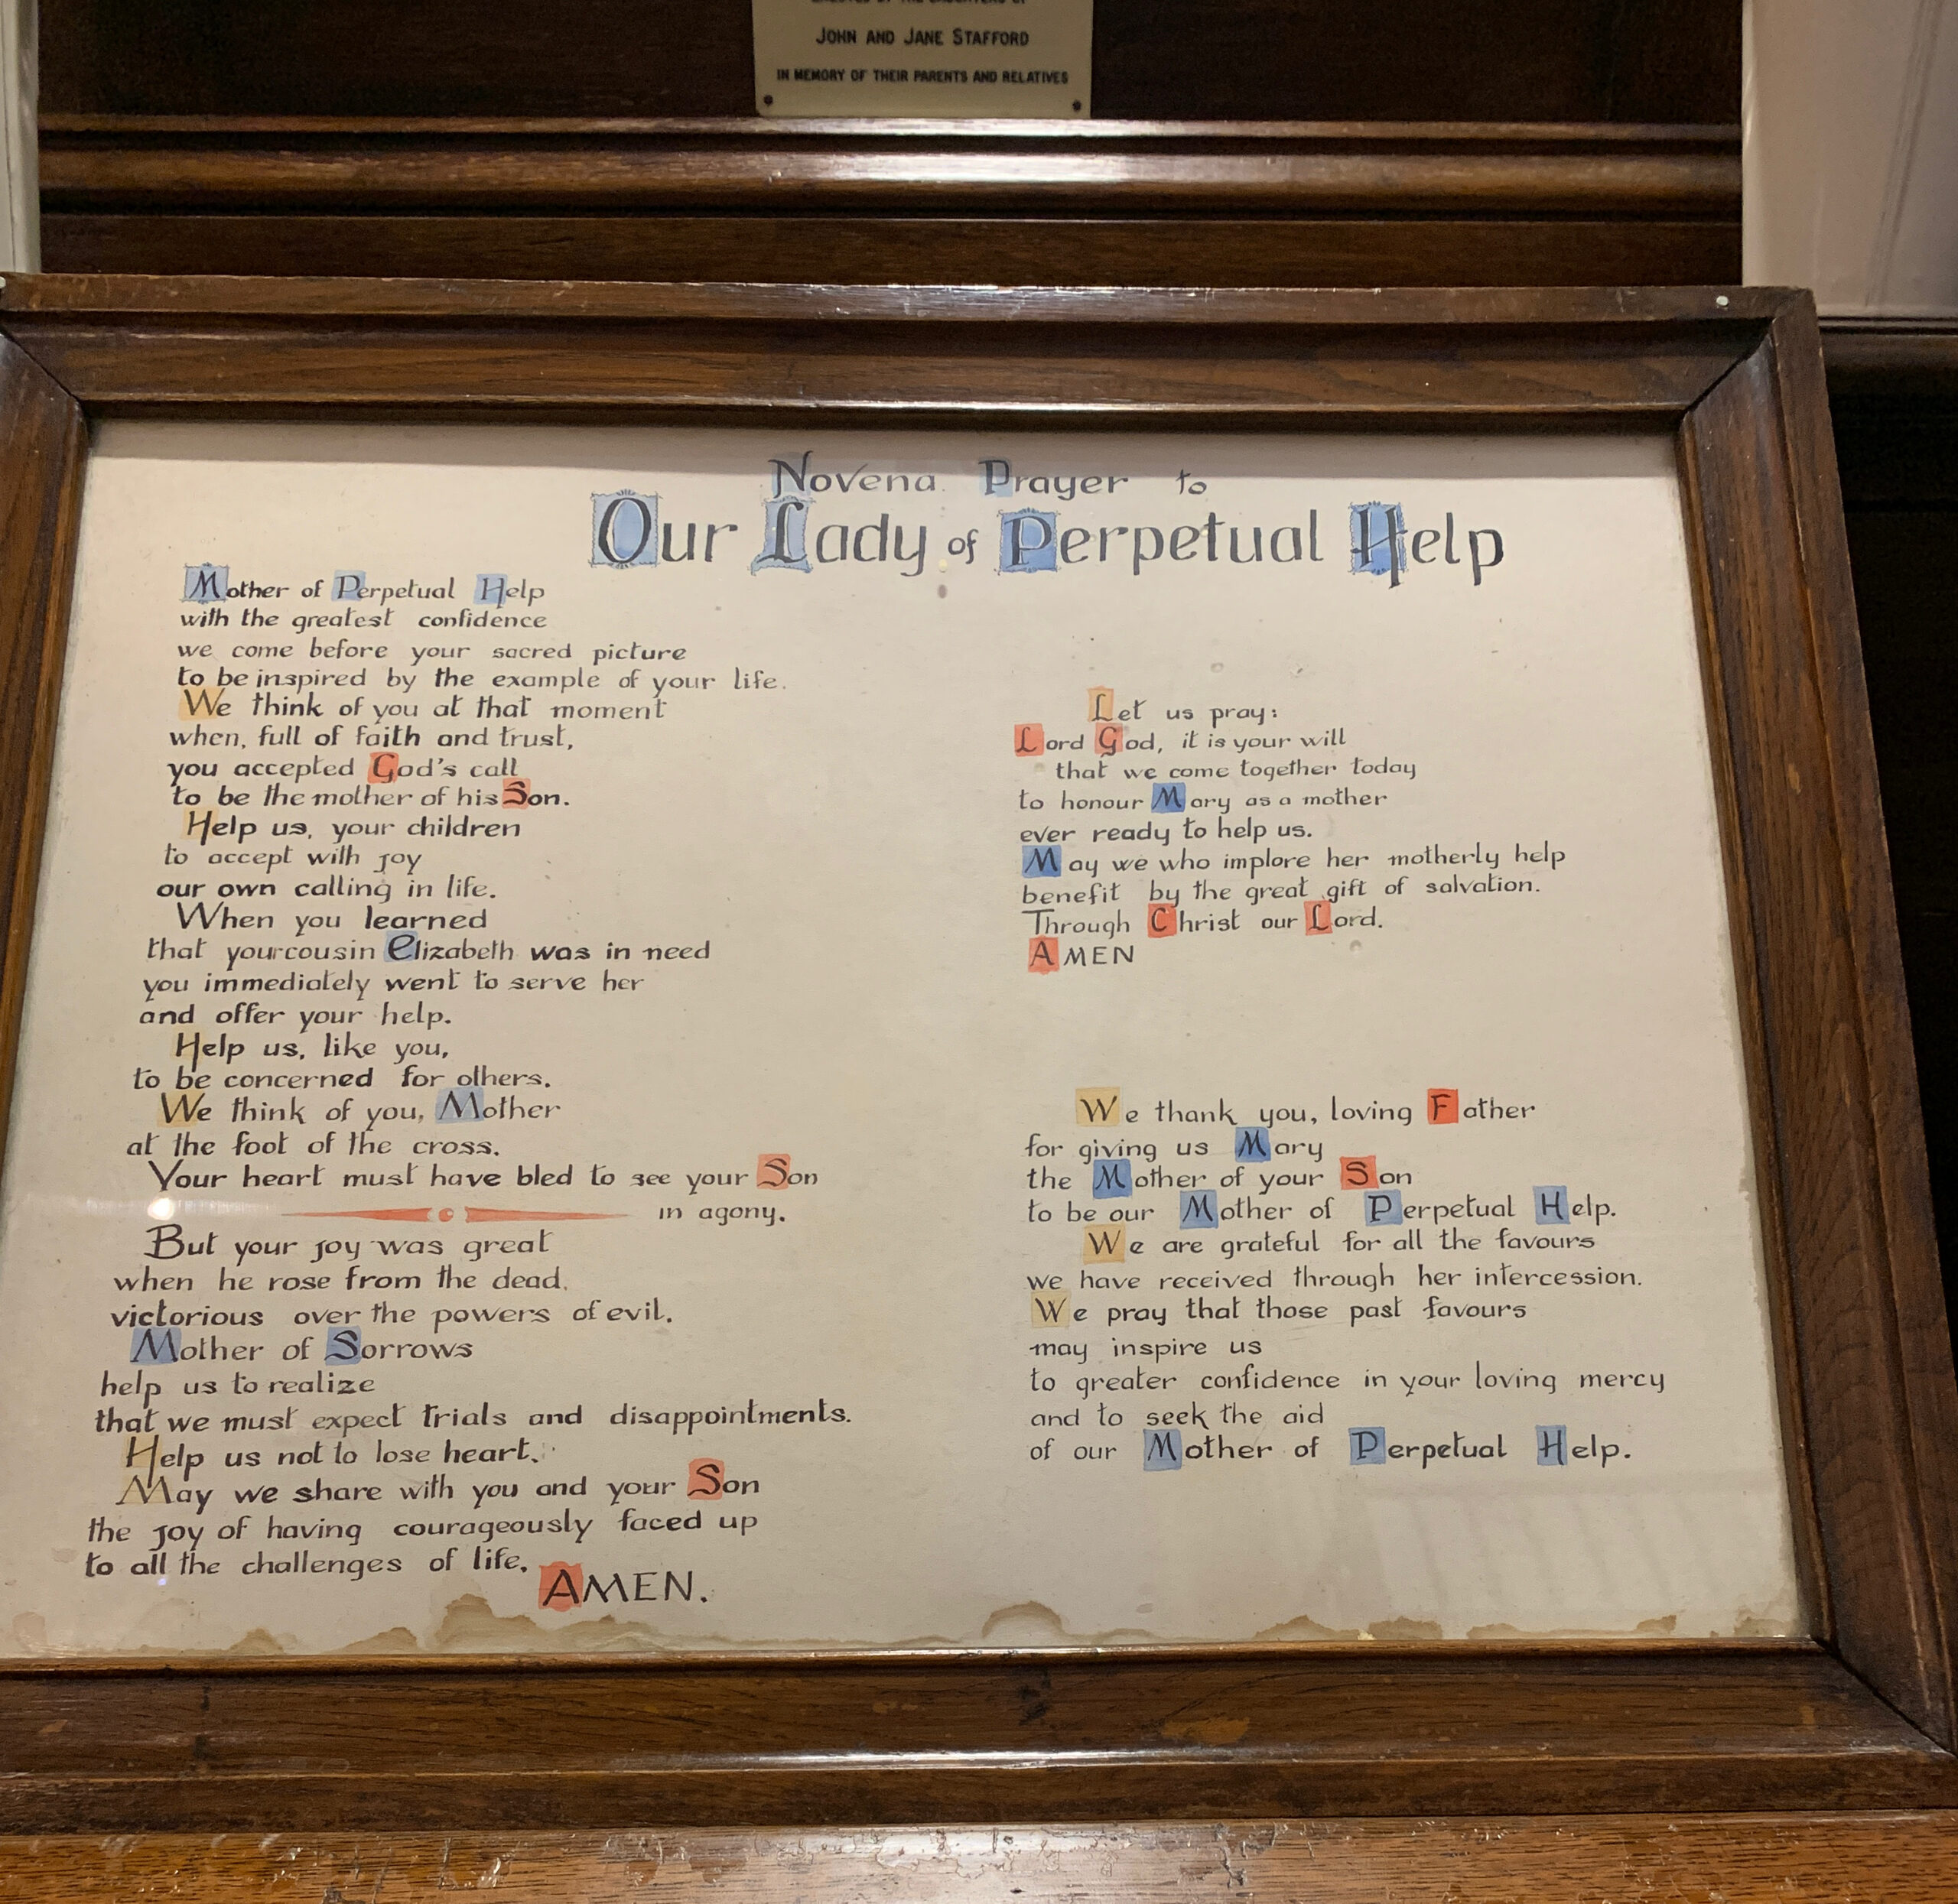 JOHN AND JANE STAFFORD
IN MEMORY OF THEIR PARENTS AND RELATIVES
Novena Prayer to
Our Lady of Perpetual Help
Mother of Perpetual Help
with the greatest confidence
we come before your sacred picture
to be inspired by the example of your life.
We think of you at that moment
when, full of faith and trust,
you accepted God's call
to be the mother of his Son.
Help us, your children
to accept with joy
our own calling in life.
When you learned
that your cousin Elizabeth was in need
you immediately went to serve her
and offer your help.
Help us, like you,
to be concerned for others.
We think of you, Mother
at the foot of the cross.
Your heart must have bled to see your Son
in agony.
But your joy was great
when he rose from the dead,
victorious over the powers of evil.
Mother of Sorrows
help us to realize
that we must expect trials and disappointments.
Help us not to lose heart.
May we share with you and your Son
the joy of having courageously faced up
to all the challenges of life.
AMEN.
Let us pray:
Lord God, it is your will
that we come together today
to honour Mary as a mother
ever ready to help us.
May we who implore her motherly help
benefit by the great gift of salvation.
Through Christ our Lord.
AMEN
We thank you, loving Father
for giving us Mary
the Mother of your Son
to be our Mother of Perpetual Help.
We are grateful for all the favours
we have received through her intercession.
We pray that those past favours
may inspire us
to greater confidence in your loving mercy
and to seek the aid
of our Mother of Perpetual Help.